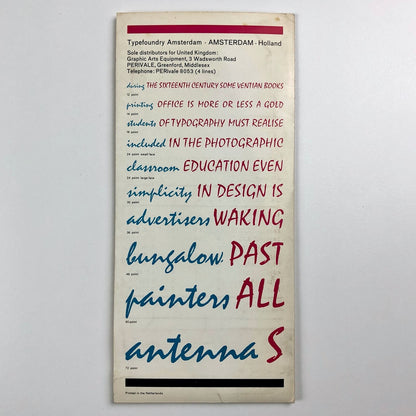 Typefoundry Amsterdam · AMSTERDAM · Holland
Sole distributors for United Kingdom:
Graphic Arts Equipment, 3 Wadsworth Road
PERIVALE, Greenford, Middlesex
Telephone: PERivale 8053 (4 lines)
during THE SIXTEENTH CENTURY SOME VENTIAN BOOKS
12 point
printing OFFICE IS MORE OR LESS A GOLD
14 point
students OF TYPOGRAPHY MUST REALISE
18 point
included IN THE PHOTOGRAPHIC
24 point small face
classroom EDUCATION EVEN
24 point large face
simplicity IN DESIGN IS
30 point
advertisers WAKING
36 point
bungalow PAST
48 point
painters ALL
60 point
antenna S
72 point
Printed in the Netherlands